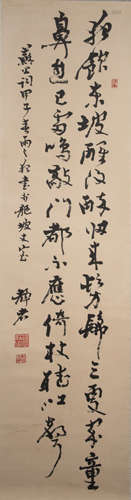 夜飲東坡醒復醉歸來髣髴三更家童
鼻息已雷鳴敲門都不應倚杖聽江聲
蘇公詞甲子春雨書於龍坡丈室
靜農